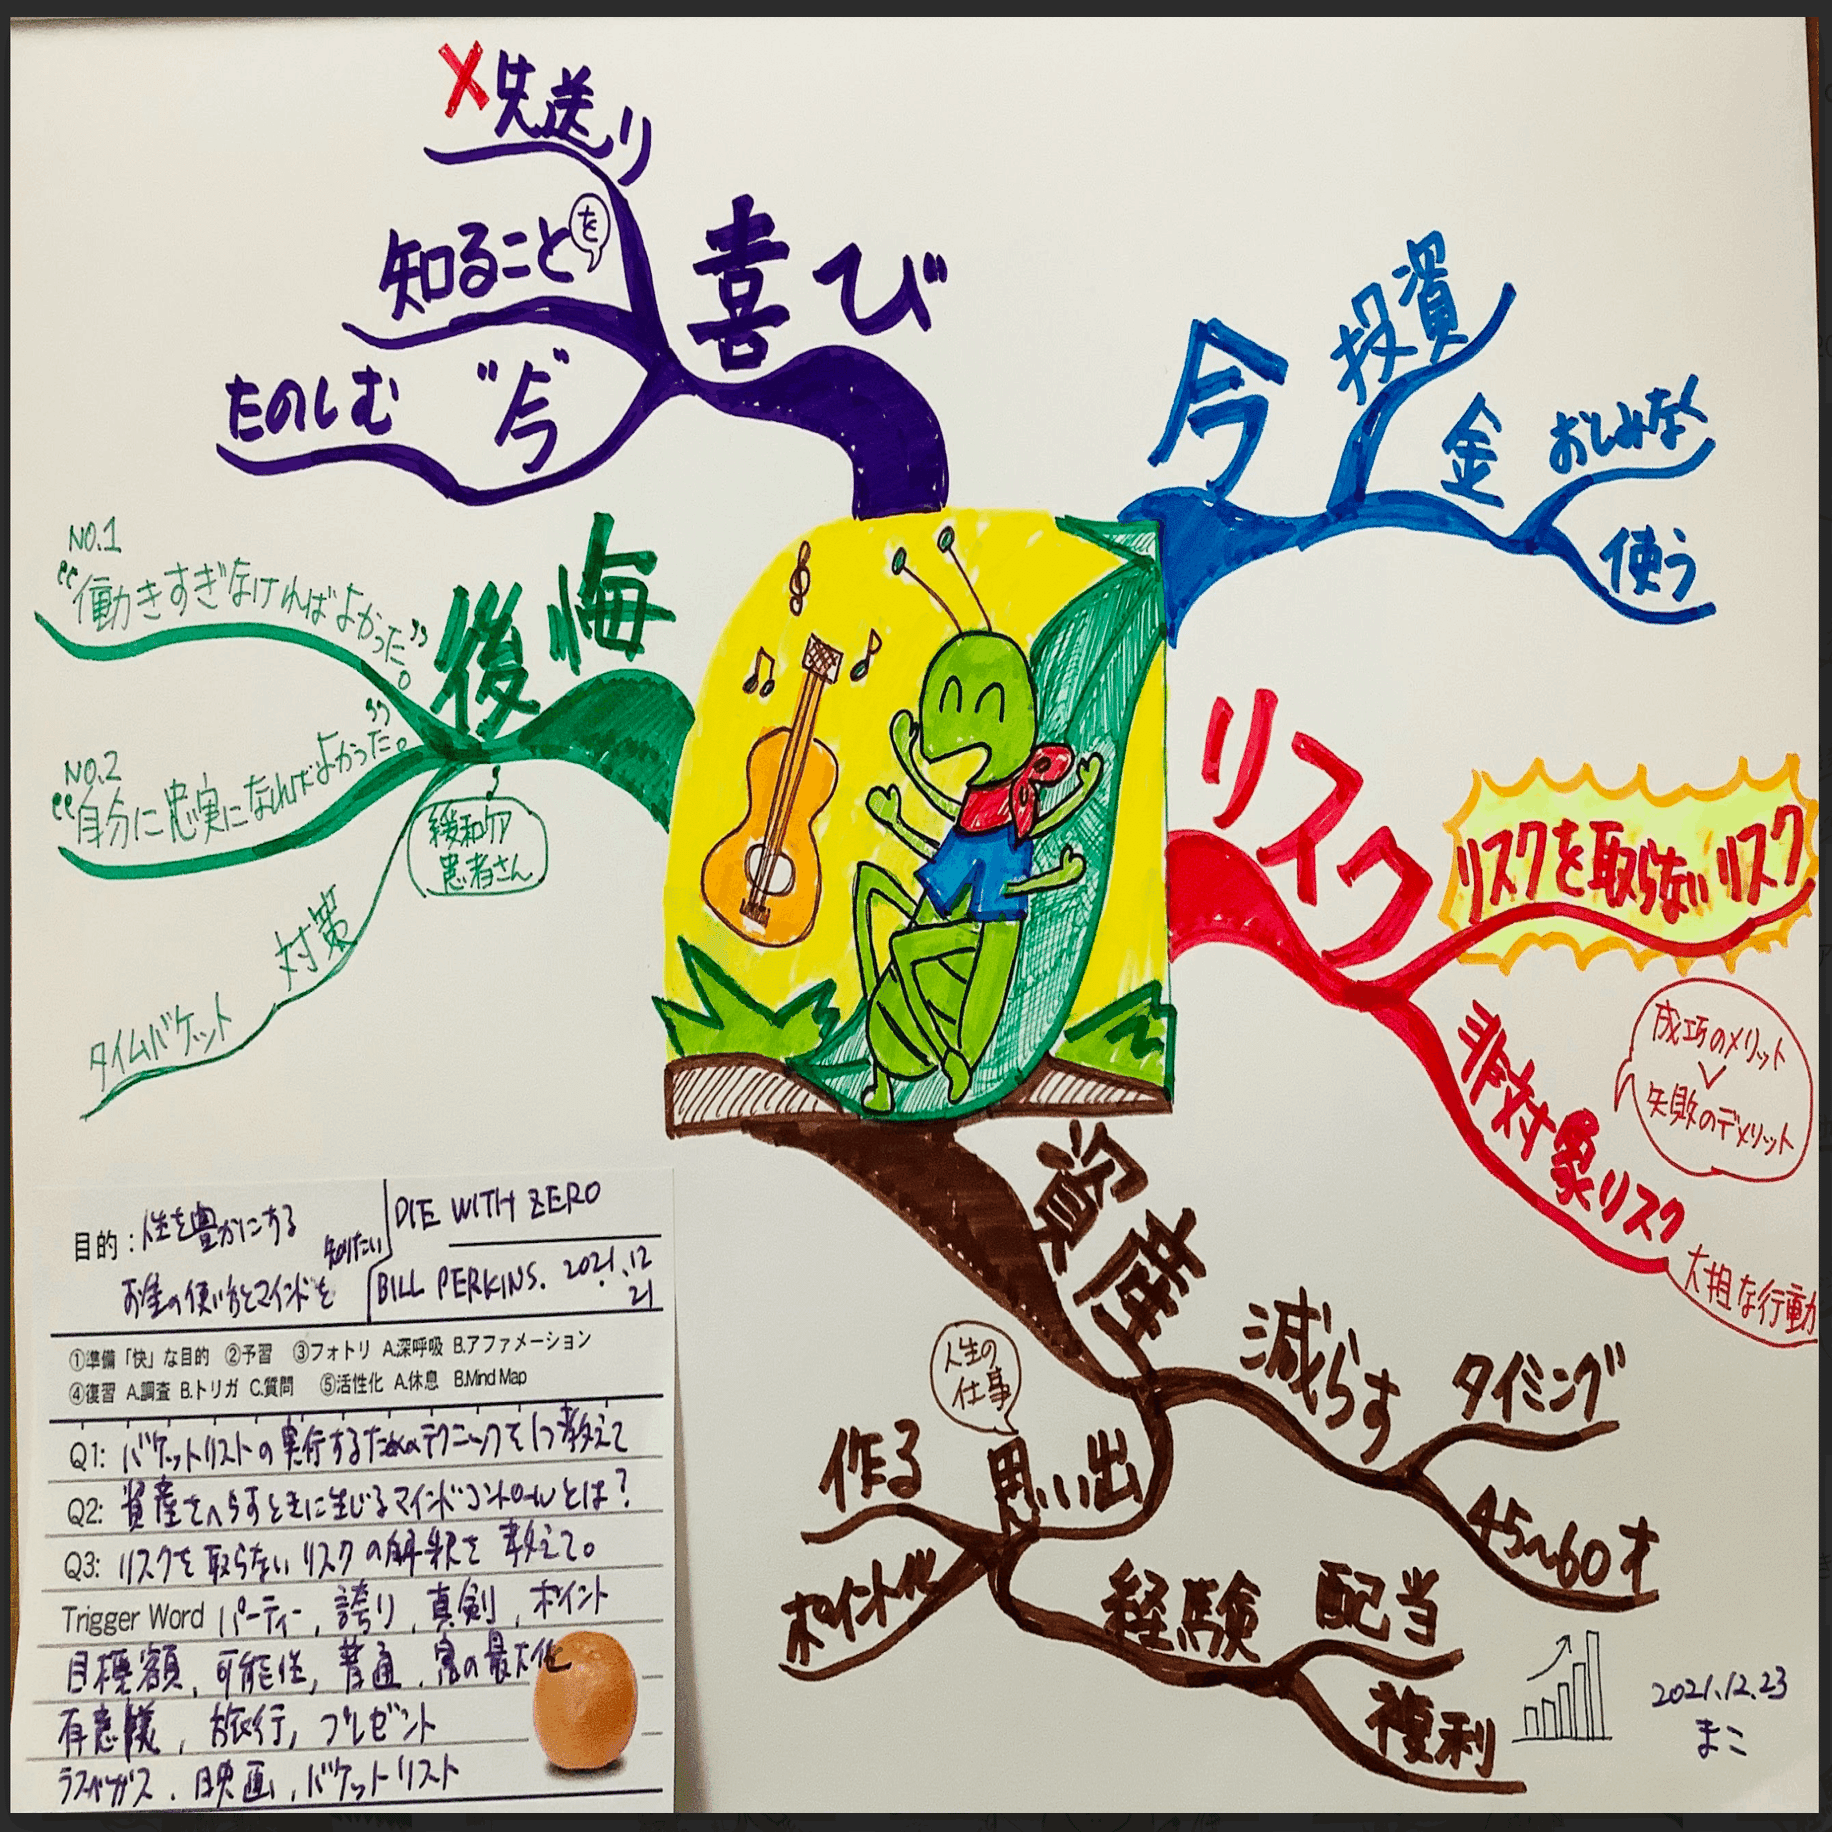 ×先送り
知ること
を
喜び
たのしむ
"今"
今
投資
金
おしみなく
使う
NO.1
"働きすぎなければよかった。"
後悔
NO.2
"自分に忠実になればよかった。"
緩和ケア
患者さん
対策
タイムバケット
リスク
リスクを取らないリスク
非対象リスク
成功のメリット
∨
失敗のデメリット
大担な行動
資産
減らす
タイミング
45~60才
人生の
仕事
思い出
作る
ポイント化
経験
配当
複利
2021.12.23
まこ
目的:人生を豊かにする
お金の使い方とマインドを
知りたい
DIE WITH ZERO
BILL PERKINS. 2021.12
21
①準備「快」な目的 ②予習 ③フォトリ A.深呼吸 B.アファメーション
④復習 A.調査 B.トリガ C.質問 ⑤活性化 A.休息 B.Mind Map
Q1: バケットリストの実行するためのテクニックを1つ教えて
Q2: 資産をへらすときに生じるマインドコントロールとは?
Q3: リスクを取らないリスクの解釈を教えて。
Trigger Word パーティー, 誇り, 真剣, ポイント
目標額, 可能性, 普通, 富の最大化
有意義, 旅行, プレゼント
ラスベガス, 映画, バケットリスト